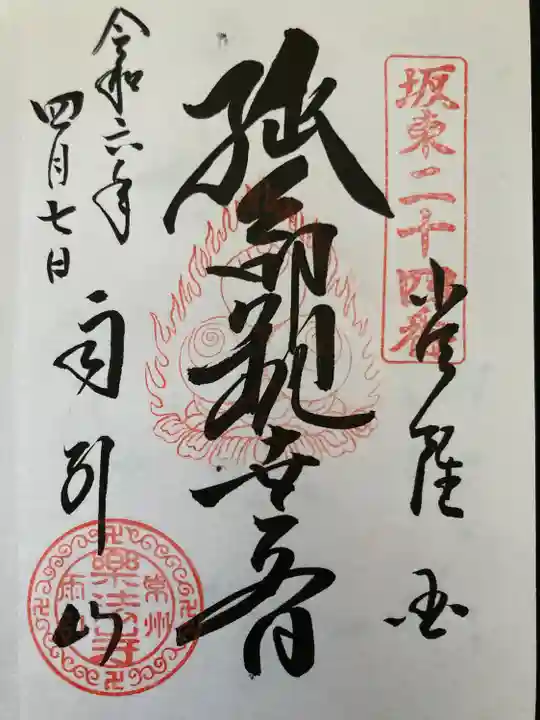 坂東二十四番
常陸国
延命観世音
令和六年
四月七日
雨引山
常州
樂法寺